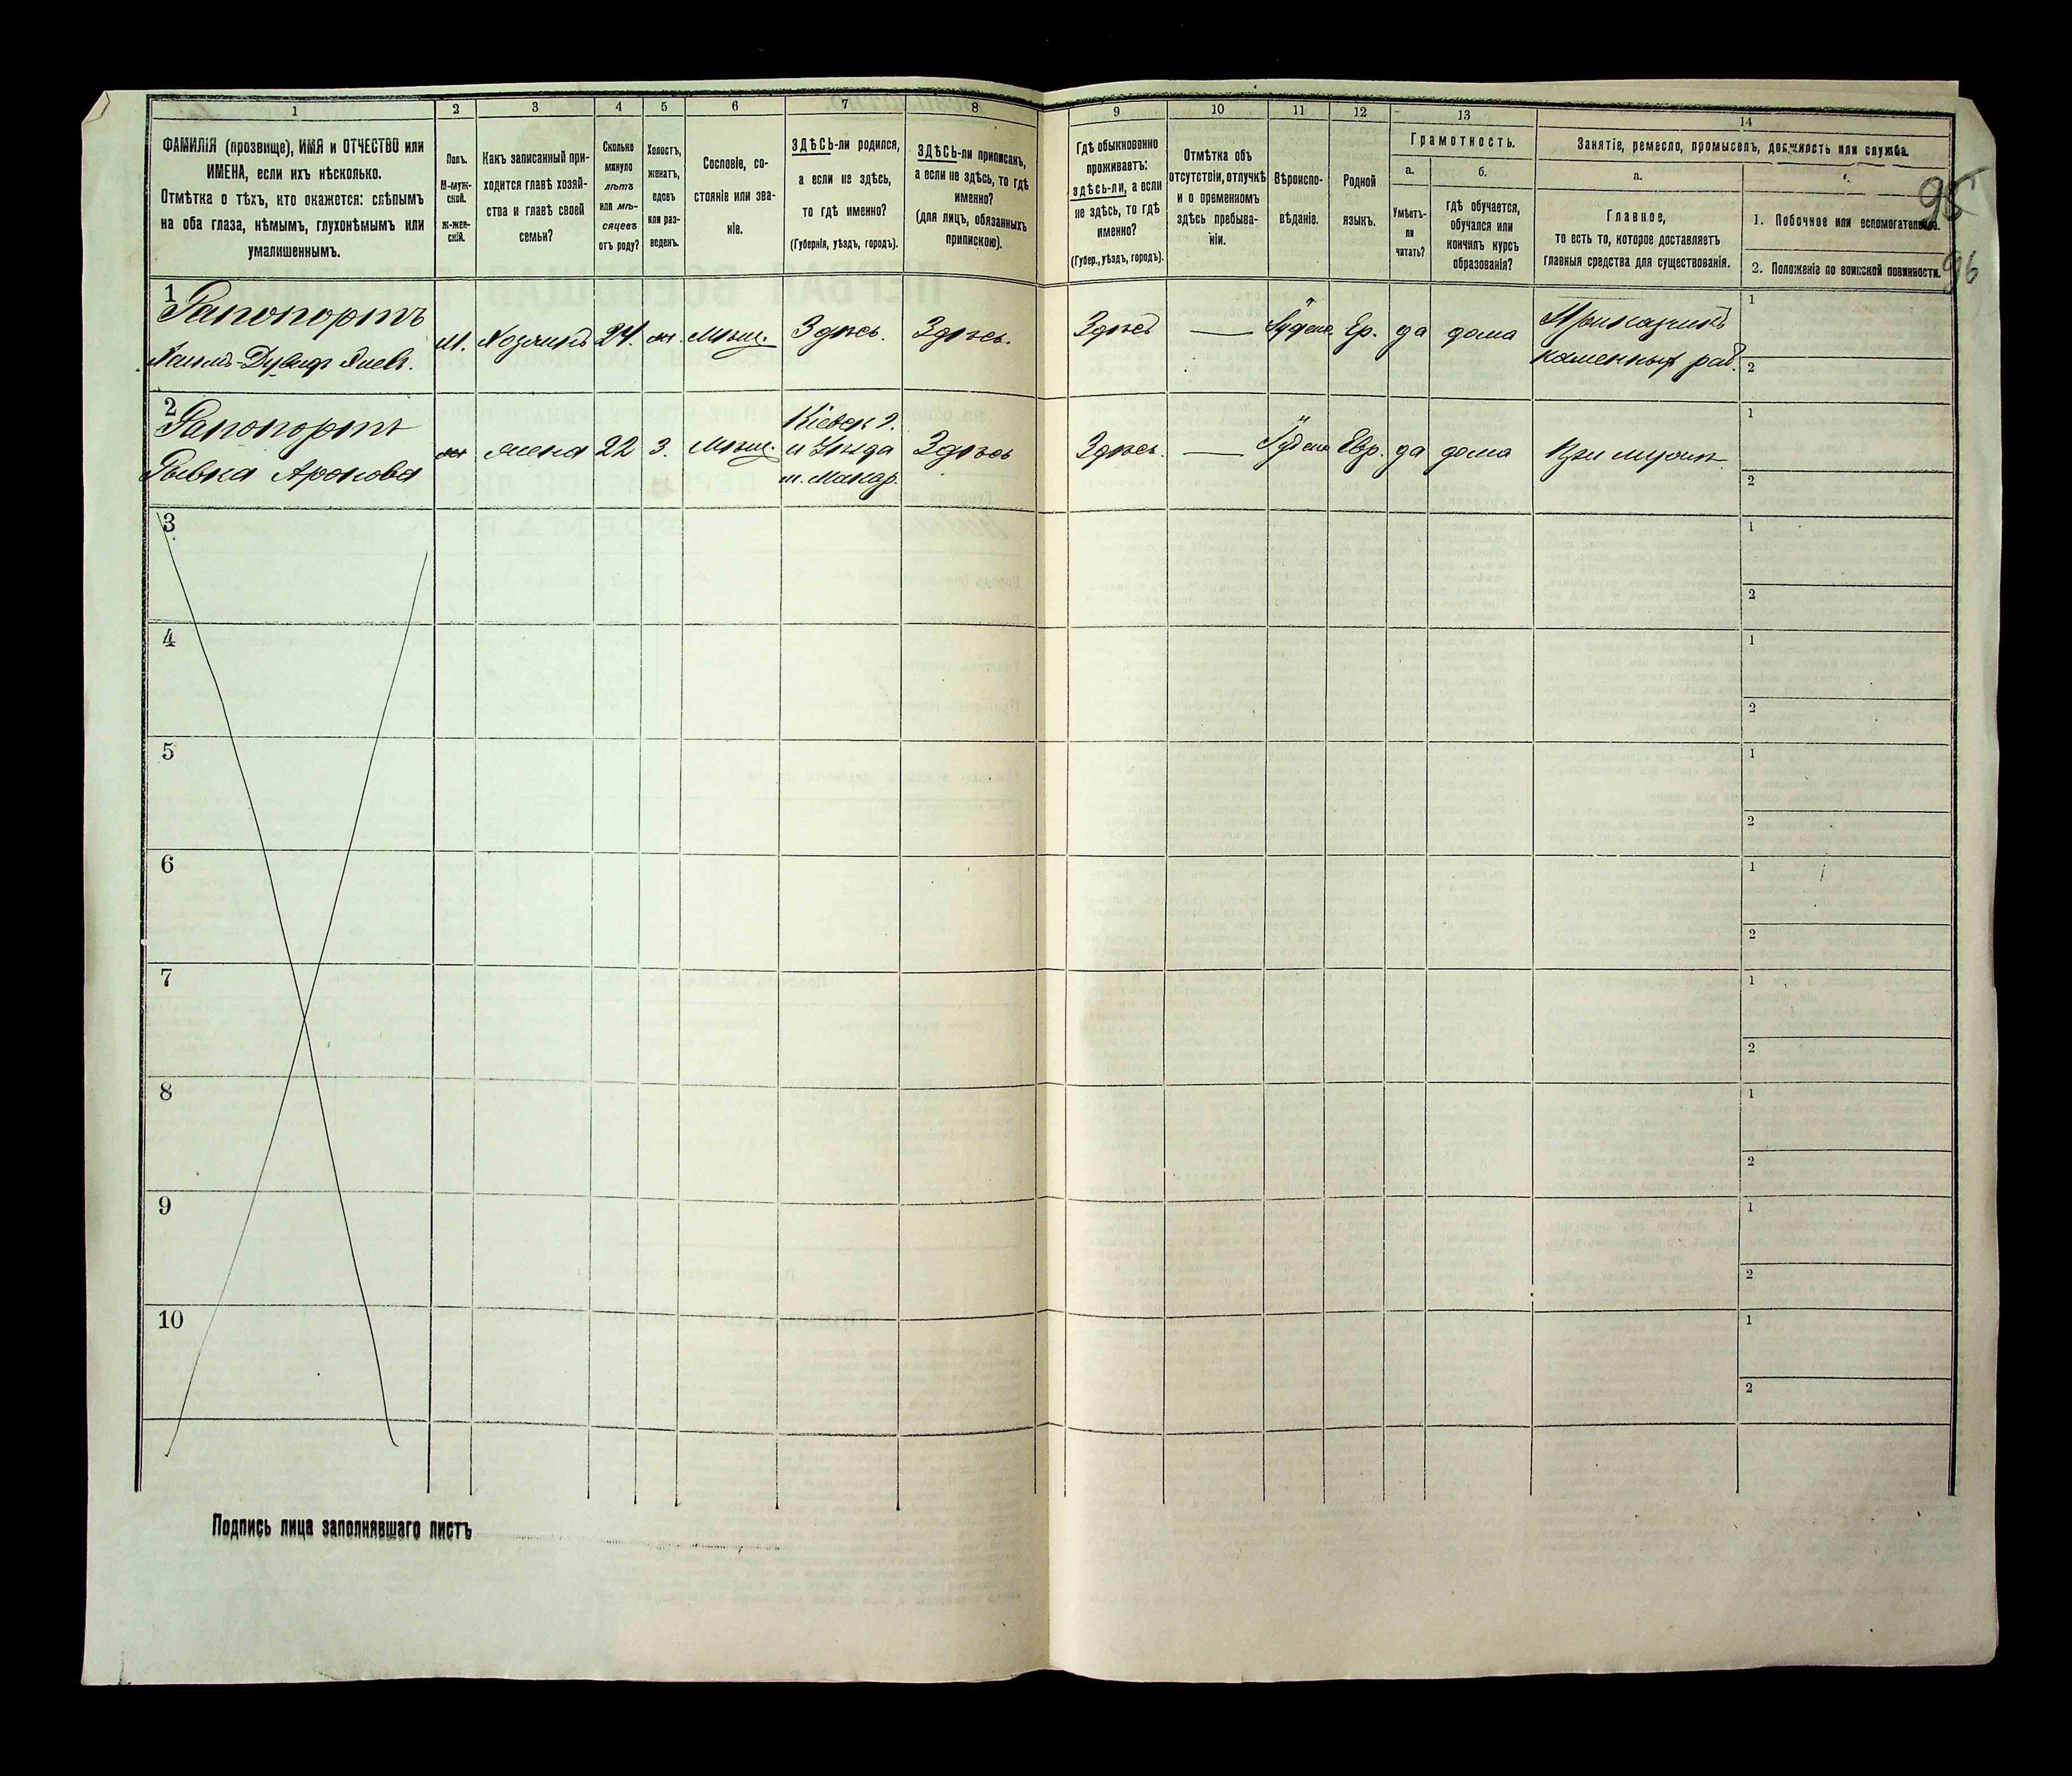 1
2
3
4
5
6
7
8
9
10
11
12
13
14
ФАМИЛІЯ (прозвище), ИМЯ и ОТЧЕСТВО или
ИМЕНА, если ихъ нѣсколько.
Отмѣтка о тѣхъ, кто окажется: слѣпымъ
на оба глаза, нѣмымъ, глухонѣмымъ или
умалишеннымъ.
Полъ.
М-муж-
ской.
Ж-жен-
скій.
Какъ записанный при-
ходится главѣ хозяй-
ства и главѣ своей
семьи?
Сколько
минуло
лѣтъ
или мѣ-
сяцевъ
отъ роду?
Холостъ,
женатъ,
вдовъ
или раз-
веденъ.
Сословіе, со-
стояніе или зва-
ніе.
ЗДѢСЬ-ли родился,
а если не здѣсь,
то гдѣ именно?
(Губернія, уѣздъ, городъ).
ЗДѢСЬ-ли приписанъ,
а если не здѣсь, то гдѣ
именно?
(для лицъ, обязанныхъ
припискою).
Гдѣ обыкновенно
проживаетъ:
здѣсь-ли, а если
не здѣсь, то гдѣ
именно?
(Губер., уѣздъ, городъ).
Отмѣтка объ
отсутствіи, отлучкѣ
и о временномъ
здѣсь пребыва-
ніи.
Вѣроиспо-
вѣданіе.
Родной
языкъ.
Грамотность.
а.
Умѣетъ-
ли
читать?
б.
гдѣ обучается,
обучался или
кончилъ курсъ
образованія?
Занятіе, ремесло, промыселъ, должность или служба.
а.
Главное,
то есть то, которое доставляетъ
главныя средства для существованія.
1. Побочное или вспомогательное.
2. Положеніе по воинской повинности.
95
96
1
Рапопортъ
М. Хозяинъ 24. ж. Мѣщ. Здѣсь. Здѣсь.
Здѣсь — Іудейс. Ев. да дома Приказчикъ
каменныхъ раб.
1
2
2
Рапопортъ
Рывка Аронова
ж жена 22 З. Мѣщ. Кіевск г.
и уѣзда
м. Макар.
Здѣсь
Здѣсь. — Іудейс Евр. да дома При мужѣ
1
2
3
1
2
4
1
2
5
1
2
6
1
2
7
1
2
8
1
2
9
1
2
10
1
2
Подпись лица заполнявшаго листъ